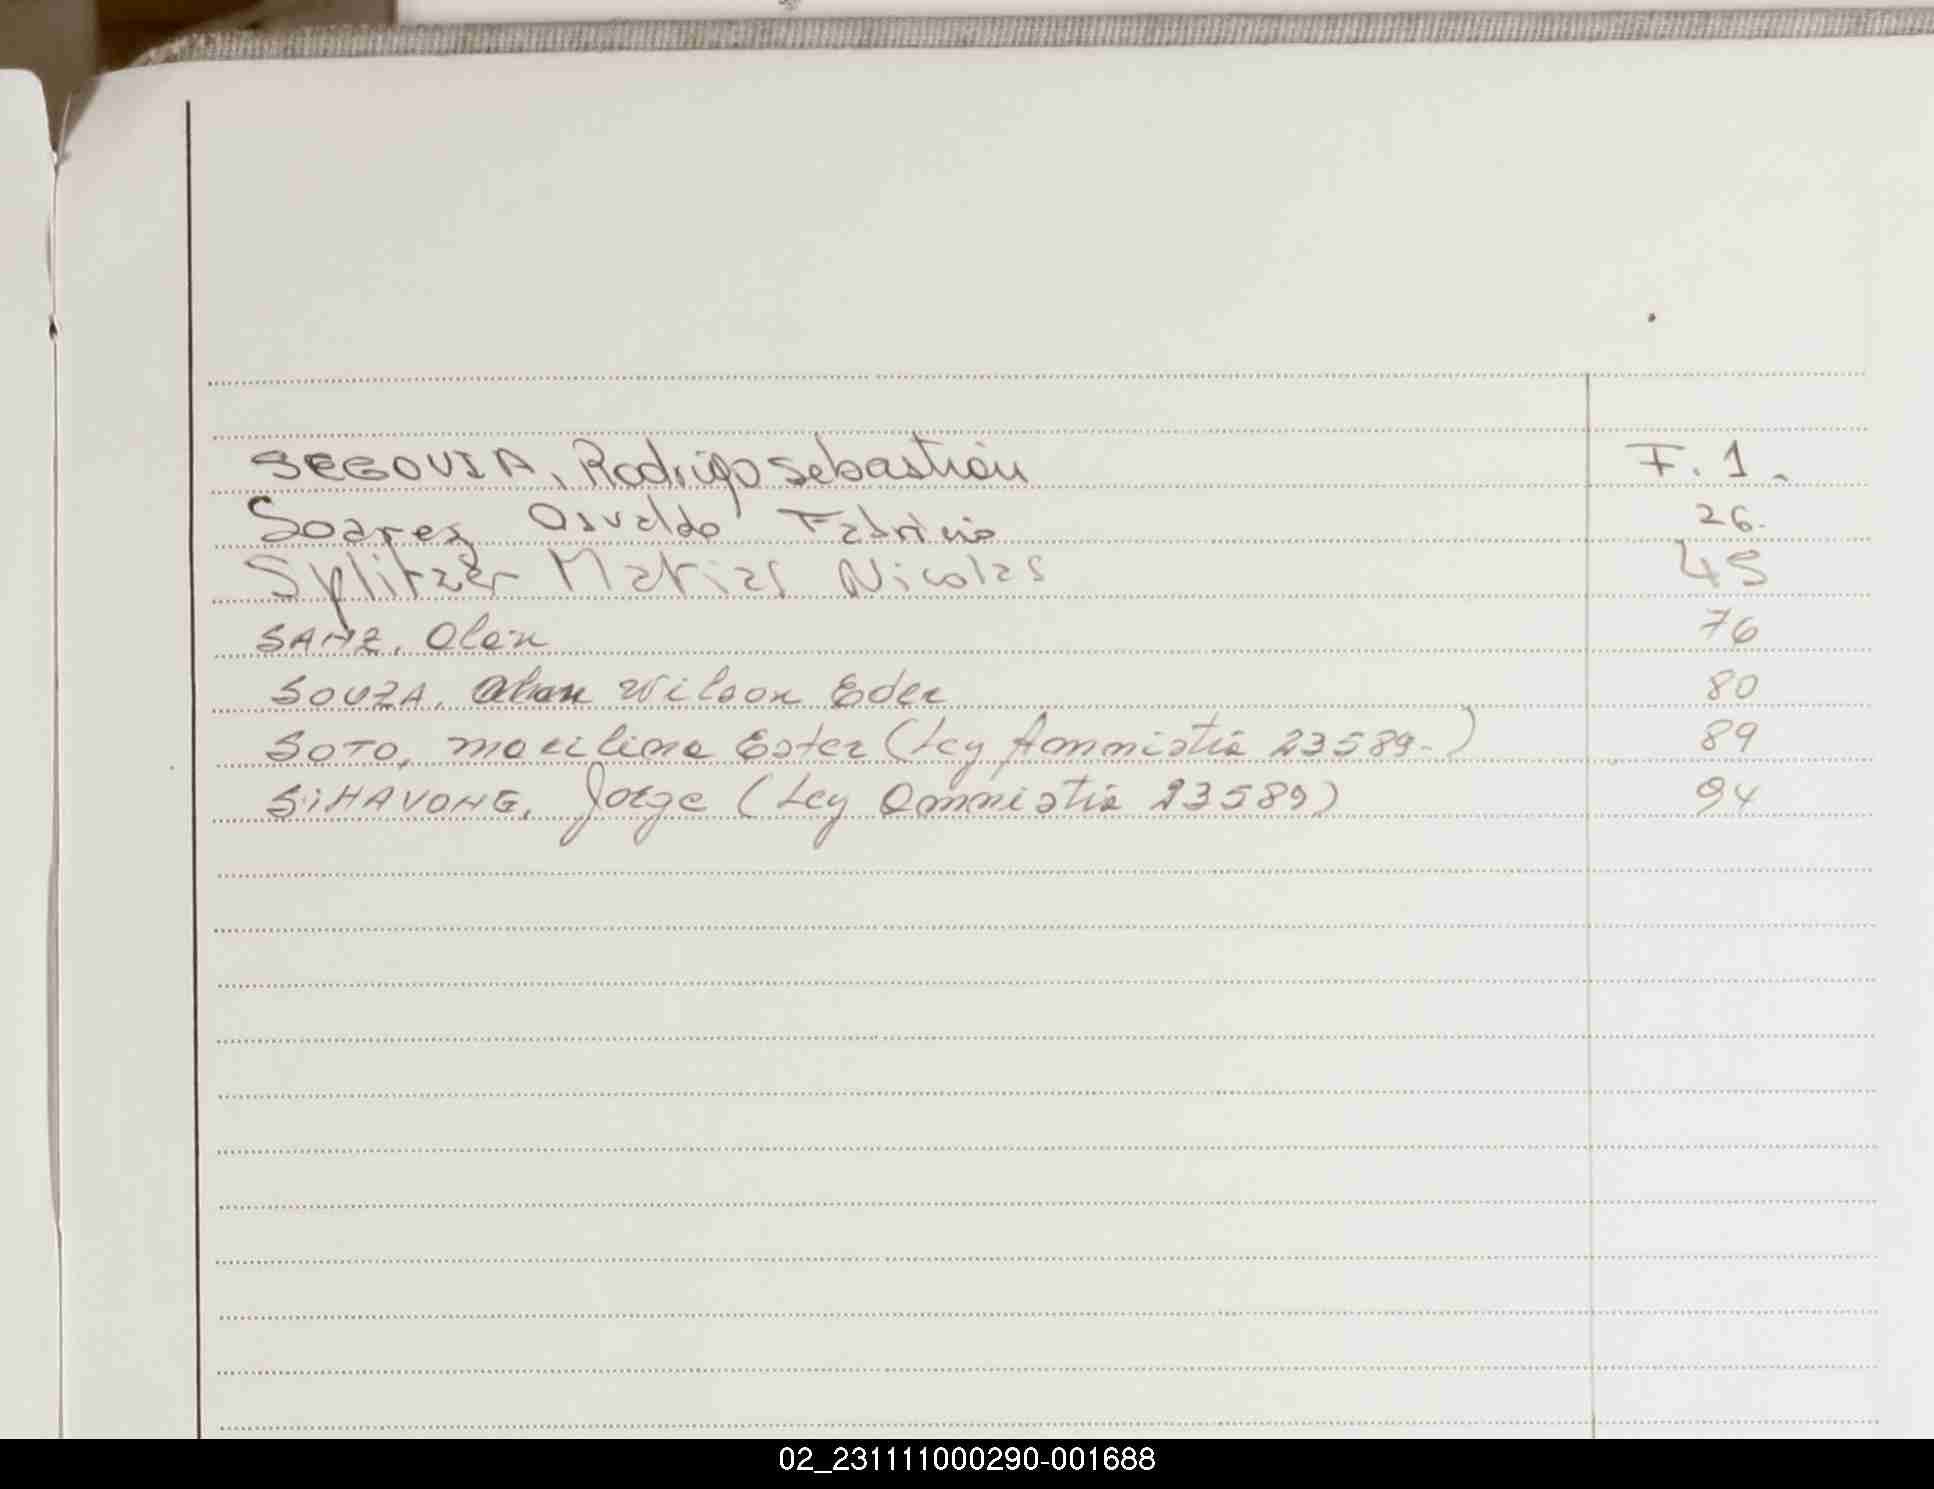 SEGOVIA, Rodrigo Sebastián F. 1.
Soarez Osvaldo Fabricio 26.
Splitzer Matias Nicolas 45
SANZ, Alan 76
SOUZA, Wilson Eder 80
SOTO, Marilina Ester (Ley Amnistia 23589-) 89
SIHAVONG, Jorge (Ley Amnistia 23589) 94
02_231111000290-001688